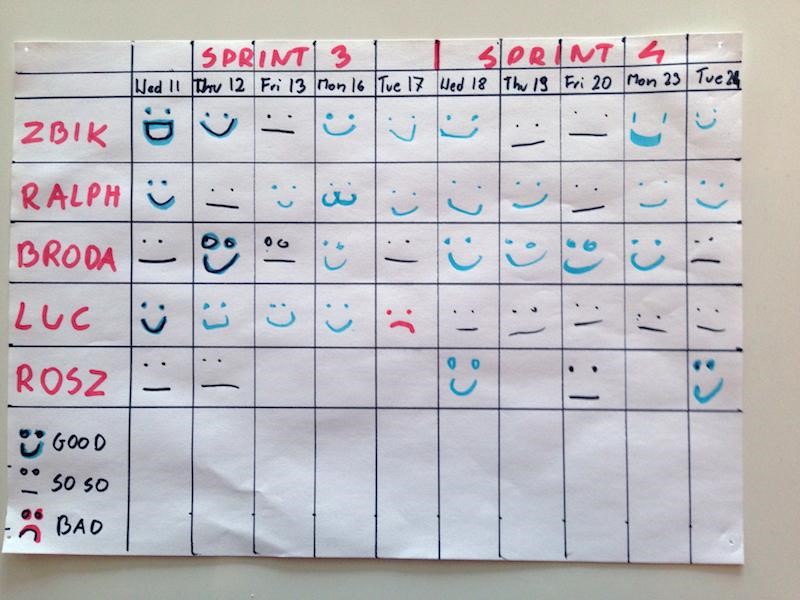 SPRINT 3 SPRINT 4
Wed 11 Thu 12 Fri 13 Mon 16 Tue 17 Wed 18 Thu 19 Fri 20 Mon 23 Tue 24
ZBIK
RALPH
BRODA
LUC
ROSZ
GOOD
SO SO
BAD